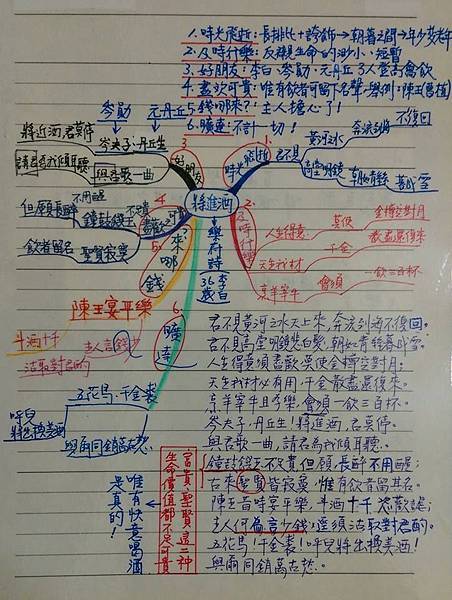 1. 時光飛逝：長排比+誇飾→朝暮之間→年少變老年
2. 及時行樂：反襯生命的渺小、短暫
3. 好朋友：李白、岑勛、元丹丘3人登高宴飲
4. 盡歡可貴：惟有飲者可留下名聲→舉例：陳王(曹植)
5. 錢哪來？：主人擔心了！
6. 曠達：不計一切！
岑勛 元丹丘
將近酒.君莫停
岑夫子、丹丘生
請君為我傾耳聽
與君歌一曲
3.
好朋友
1.
時光飛逝
君不見
黃河之水
奔流到海
不復回
高堂明鏡
朝如青絲
暮成雪
將進酒
樂府詩
李白
36歲
2.
及時行樂
人生得意
莫使
金樽空對月
天生我材
千金
散盡還復來
烹羊宰牛
會須
一飲三百杯
4.
但願長醉
不用醒
鐘鼓饌玉
不足貴
飲者留名
聖賢寂寞
5.
錢
哪
來?
陳王宴平樂
斗酒十千
主人言錢少
沽取對君酌
6.
曠達
五花馬、千金裘
呼兒
將出換美酒
與爾同銷萬古愁
君不見黃河之水天上來，奔流到海不復回。
君不見高堂明鏡悲白髮，朝如青絲暮成雪。
人生得意須盡歡，莫使金樽空對月；
天生我材必有用，千金散盡還復來。
烹羊宰牛且為樂，會須一飲三百杯。
岑夫子、丹丘生！將進酒，君莫停。
與君歌一曲，請君為我傾耳聽：
鐘鼓饌玉不足貴，但願長醉不用醒；
古來聖賢皆寂寞，惟有飲者留其名。
陳王昔時宴平樂，斗酒十千恣歡謔；
主人何為言少錢？逕須沽取對君酌。
五花馬！千金裘！呼兒將出換美酒！
與爾同銷萬古愁。
富貴、聖賢這二種
生命價值都不足可貴
唯有快意喝酒
是真的！